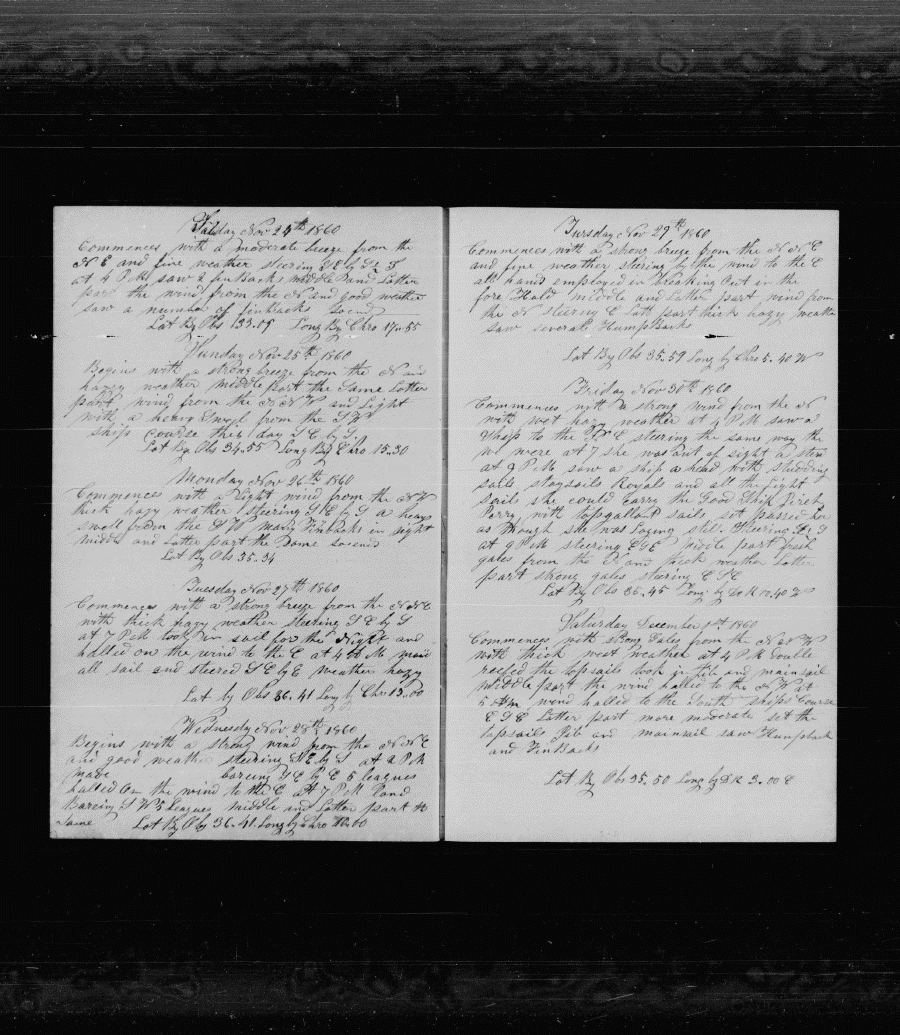 Saturday Nov 24th 1860
Commences with a moderate breeze from the
N E and fine weather steering SE by S
at 4 P M saw 2 finbacks middle and Latter
part the wind from the N and good weather
saw a number of finbacks
Lat By Obs 33.09 Long By Chro 17.55
Sunday Nov 25th 1860
Begins with a strong breeze from the N and
hazy weather middle part the Same Latter
part wind from the N N W and Light
with a heavy Swell from the S W
ships course this day S E by S
Lat By Obs 34.55 Long By Chro 15.30
Monday Nov 26th 1860
Commences with a Light wind from the N W
thick hazy weather steering SE by S a heavy
swell from the S W many Finbacks in sight
middle and Latter part the Same
Lat By Obs 35.34
Tuesday Nov 27th 1860
Commences with a strong breeze from the N N E
with thick hazy weather steering S E by S
at 7 P M took in sail for the Night and
halled on the wind to the E at 4 A M made
all sail and steered S E by E weather hazy
Lat by Obs 36.41 Long by Chro 13.00
Wednesdy Nov 28th 1860
Begins with a strong wind from the N N E
and good weather steering SE by S at 2 P M
made bareing S E by E 5 leagues
halled on the wind to the E at 7 P M Land
Bareing S W 5 Leagues middle and Latter part the
Same Lat By Obs 36.41 Long by Chro
Tursday Nov 29th 1860
Commences with a strong breeze from the N N E
and fine weather steering by the wind to the E
all hands employed in breaking Out in the
fore Hold middle and Latter part wind from
the N steering E Latt part thick hazy weathe
saw several HumpBacks
Lat By Obs 35.59 Long by Chro 5.40 W
Friday Nov 30th 1860
Commences with a strong wind from the N
with wet hazy weather at 4 P M saw a
Ship to the steering the same way the
we were at 7 she was out of sight a stern
at 9 P M saw a ship a head with studding
sails staysails Royals and all the Light
sails she could Carry the Good Ship
Perry with topgallant sails set passed her
as though she was Laying still Steering
at 9 P M steering ESE middle part fresh
gales from the N and thick weather Latter
part strong gales steering E S E
Lat By Obs 36.45 Long by D R 10.40 W
Saturday December 1st 1860
Commences with strong Gales from the N N W
with thick weet weather at 4 P M Double
reefed the topsails took in Jib and mainsail
Middle part the wind halled to the N W at
5 Am wind halled to the South ships Course
E S E Latter part more moderate set the
topsails Jib and mainsail saw Humpback
and FinBacks
Lat By Obs 35.50 Long by D R 3.00 E